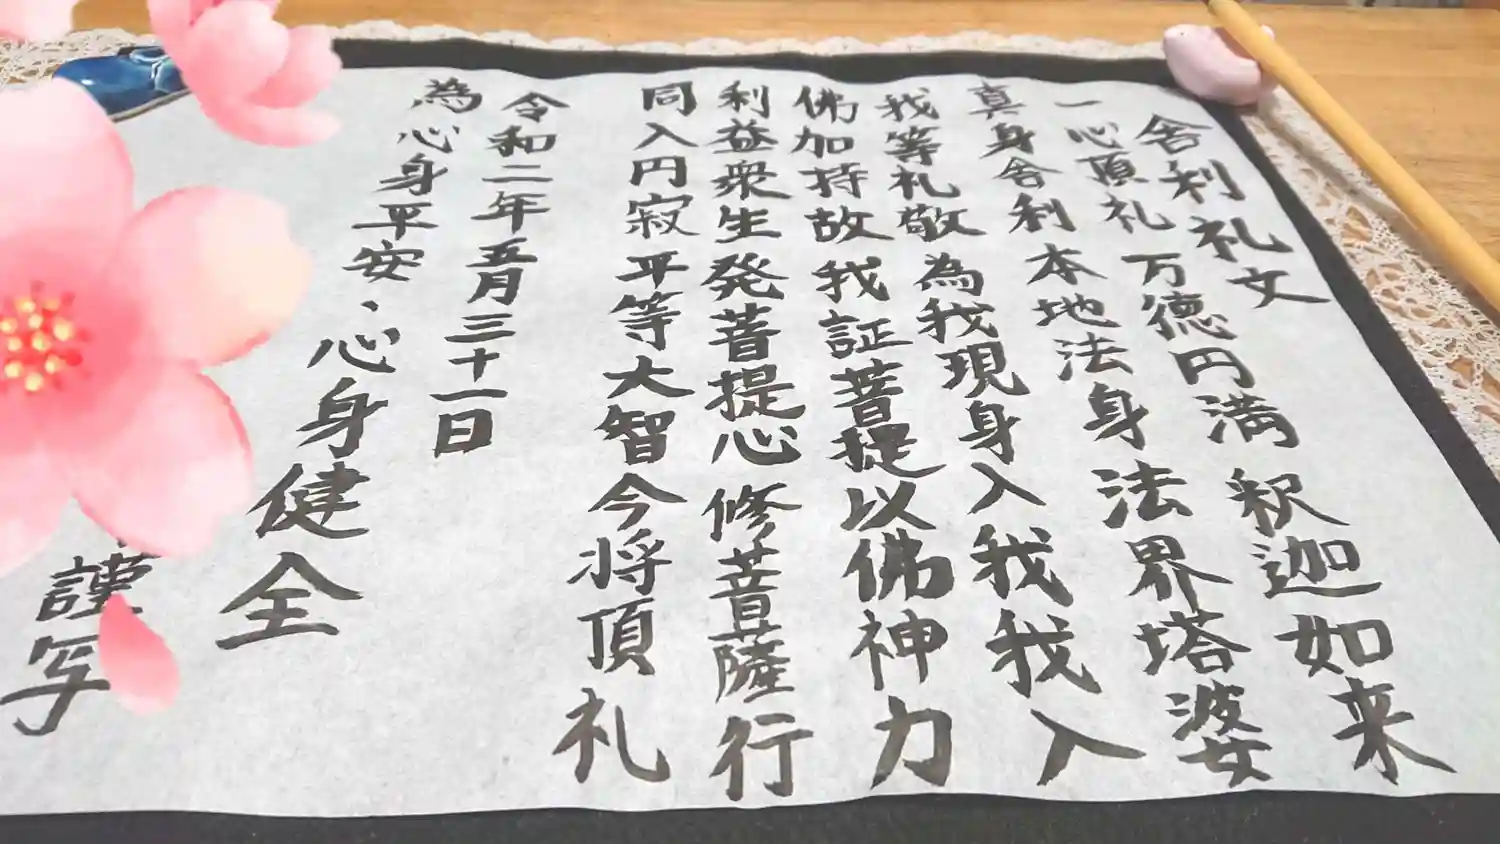 舎利礼文
一心頂礼万徳円満釈迦如来
真身舎利本地法身法界塔婆
我等礼敬為我現身入我我入
佛加持故我証菩提以佛神力
利益衆生発菩提心修菩薩行
同入円寂平等大智今将頂礼
令和二年五月三十一日
為心身平安、心身健全
謹写